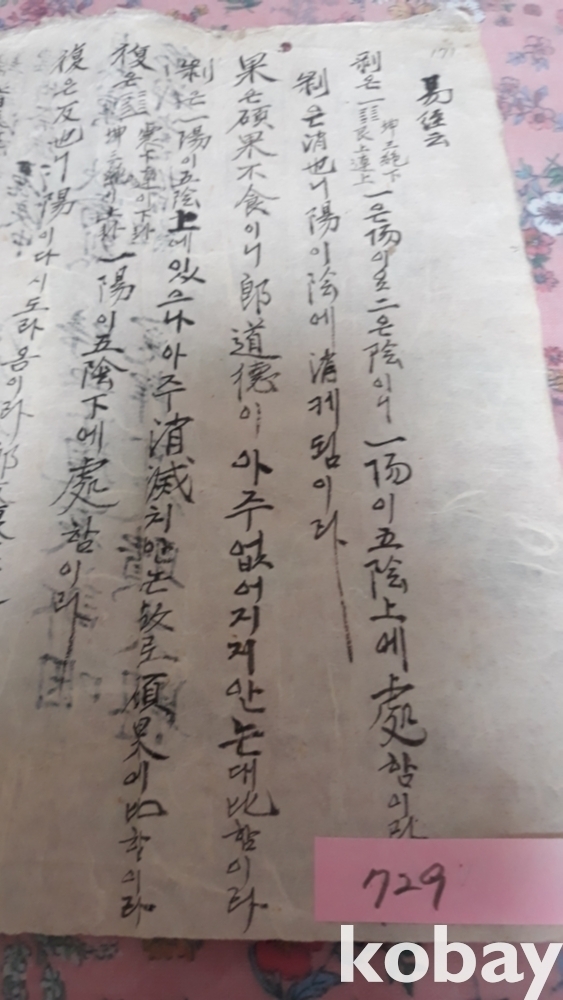 易經云
剝은 ䷖ 坤三絶下 艮上連上 一은 陽이오 二은 陰이니 一陽이 五陰上에 上處함이라
剝은 消也니 陽이 陰에 消케 됨이라
果는 碩果不食이니 郎道德이 아주 없어지지 안는대 比함이라
剝은 一陽이 五陰上에 있으나 아주 消滅치 안는 故로 碩果에 比함이라
復은 ䷗ 一陽이 五陰下에 處함이라
復은 反也니 陽이 다시 도라옴이라
729
kobay